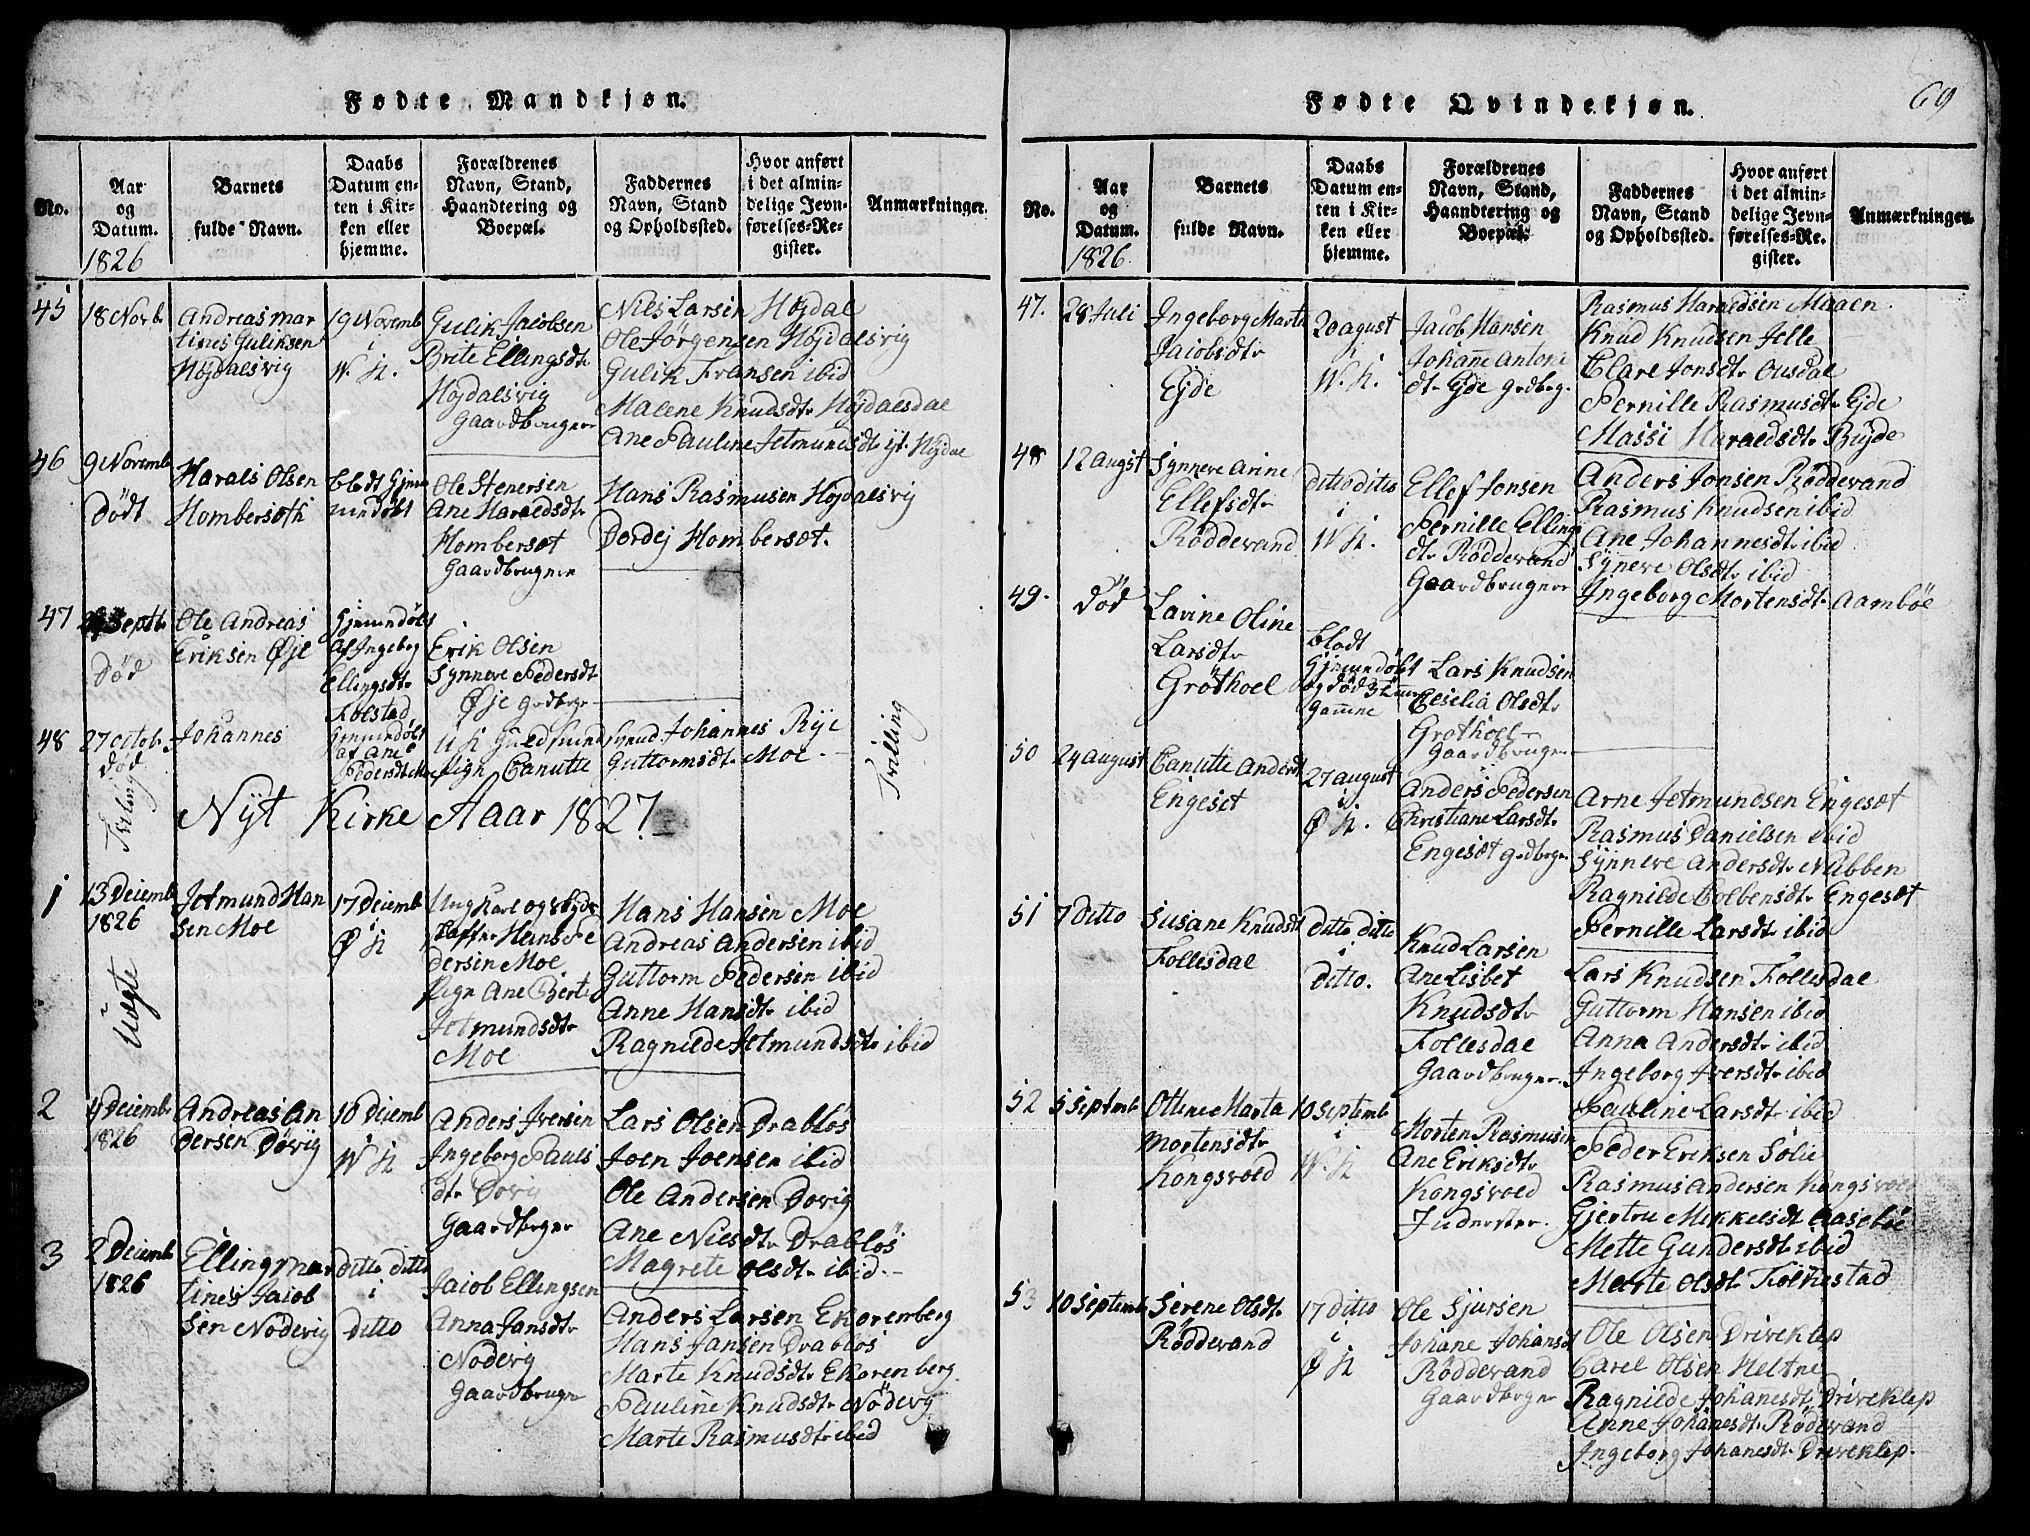 Fødte Mandkjøn.
No.
Aar
og
Datum.
1826
Barnets
fulde Navn.
Daabs
Datum en-
ten i Kir-
ken eller
hjemme.
Forældrenes
Navn, Stand,
Haandtering og
Boepæl.
Faddernes
Navn, Stand
og Opholdssted.
Hvor anført
i det almin-
delige Jevn-
førelses-Re-
gister.
Anmærkninger.
45
18 Novb.
Andreas mar
tines Guliksen
Höjdalsvig
19 Novemb
i
W. K.
Gulik Jacobsen
Brite Ellingsdtr
Höjdalsvig
Gaardbruger
Niels Larsen Höjdal
Ole Jörgensen Höjdalsvig
Gulik Fransen ibid
Malene Knudsdtr Höjdalsdal
Ane Pauline Jetmundsdtr yt. Höjdal
46
9 Novemb
Dödt
Harals Olsen
Hombersøth
Ole Stenersen
Ane Haraldsdtr
Hombersæt
Gaardbruger
Hans Rasmusen Höjdalsvig
Dordej Hombersæt.
47
Septbr
Död
Ole Andreas
Eriksen Øje
Gjemmedöbt
af Ingebog
Ellingsdtr
Folstad
Erik Olsen
Synneve Pedersdtr
Øje Grdbrgr
48
27 octob.
död
Tvilling
Johannes
Gjemmedöbt
af Ane
Pedersdt Moe
Pign Canutte
Knud Johannes Rye
Guttormsdtr Moe
Tvilling
Nyt Kirke Aaar 1827
1
13 Decemb
1826
Uægte
Jetmund Han
sen Moe
17 Decemb
i
Ø K
Ungkarl og
Hans Pe
dersen Moe
Pign Ane Berte
Jetmundsdtr
Moe
Hans Hansen Moe
Andreas Andersen ibid
Guttorm Pedersen ibid
Anne Hansdtr ibid
Ragnilde Jetmundsdtr ibid
2
4 Decembr
1826
Andreas An
dersen Dövig
10 Decemb
i
W K
Anders Iversen
Ingeborg Pauls
dtr Dovig
Gaardbrger
Lars Olsen Drabløs
Joen Joensen ibid
Ole Andersen Dovig
Ane Nielsdtr Drabløs
Magrete Olsdtr ibid.
3
2 Decemb
1826
Elling mar
tines Jacob
sen Nödevig
Ditto Ditto
i
Ditto
Jacob Ellingsen
Anna Jansdtr
Nodevig
Gaardbruger
Anders Larsen Ekorenberg
Hans Jansen Drabløs
Marte Knudsdtr Ekorenberg.
Pauline Knudsdtr Nödevg
Marte Rasmusdtr ibid
Fødte Qvindekjøn.
69
No.
Aar
og
Datum.
1826.
Barnets
fulde Navn.
Daabs
Datum en-
ten i Kir-
ken eller
hjemme.
Forældrenes
Navn, Stand,
Haandtering og
Boepæl.
Faddernes
Navn, Stand
og Opholdssted.
Hvor anført
i det almin-
delige Jevn-
førelses-Re-
gister.
Anmærkninger.
47.
28 Juli
Ingeborg Marta
Jacobsdtr
Ejde
20 august
i
W. K.
Jacob Hansen
Johanne Antone
dtr Ejde Grdbrg.
Rasmus Haraldsen Maaen
Knud Knudsen Jelle
Clare Jonsdtr Ousdal
Pernille Rasmusdtr Ejde
Massi Haraldsdtr Bugde
48
12 Augst
Synneve Arine
Ellefsdtr
Röddevand
ditto ditto
i
W K.
Ellef Jonsen
Pernille Ellings
dtr Röddevand
Gaardbruger
Anders Jonsen Röddevand
Rasmus Knudsen ibid
Ane Johannesdtr ibid
Syneve Olsdtr ibid
Ingeborg Mortensdtr Aamböe
49.
Död
Lavine Oline
Larsdtr
Gröthoel
blodt
Gjemmedöbt
og död
Lars Knudsen
Cecilia Olsdtr
Grothoel
Gaardbruger
50
24 august
Canutte Andersdt
Engeset
27 august
i
Ø K.
Anders Pedersen
Christiane Larsdtr
Engeset Grdbrgr
Arne Jetmundsen Engesæt
Rasmus Danielsen ibid
Synneve Andersdtr Nubben
Ragnilde Colbensdtr Engesæt
Pernille Larsdtr ibid
51
7 Ditto
Susane Knudsdt
Follesdal
Ditto Ditto
i
Ditto.
Knud Larsen
Ane Lisbet
Knudsdtr
Follesdal
Gaardbruger.
Lars Knudsen Follesdal
Guttorm Hansen ibid
Anna Andersdtr ibid
Ingeborg Iversdtr ibid
Pauline Larsdtr ibid
52
5 Septemb
Ottine Marta
Mortensdtr
Kongsvold
10 Septemb
i
W. K
Morten Rasmusen
Ane Eriksdtr
Kongsvold
Inderster.
Peder Eriksen Solie
Rasmus Andersen Kongsvold
Gjertru Mikkelsdt Aaseböe
Mette Gundersdtr ibid
Marte Olsdt Folkestad
53
10 Septemb
Serene Olsdtr
Röddevand
17 Ditto
i
Ø K
Ole Sjursen
Johane Johansdt
Röddevand
Gaardbrger
Ole Olsen Driveklep
Carel Olsen Heltne
Ragnilde Johanesdt. Driveklep
Anne Johanesdtr Rödevand
Ingeborg Johanesdtr Driveklep.